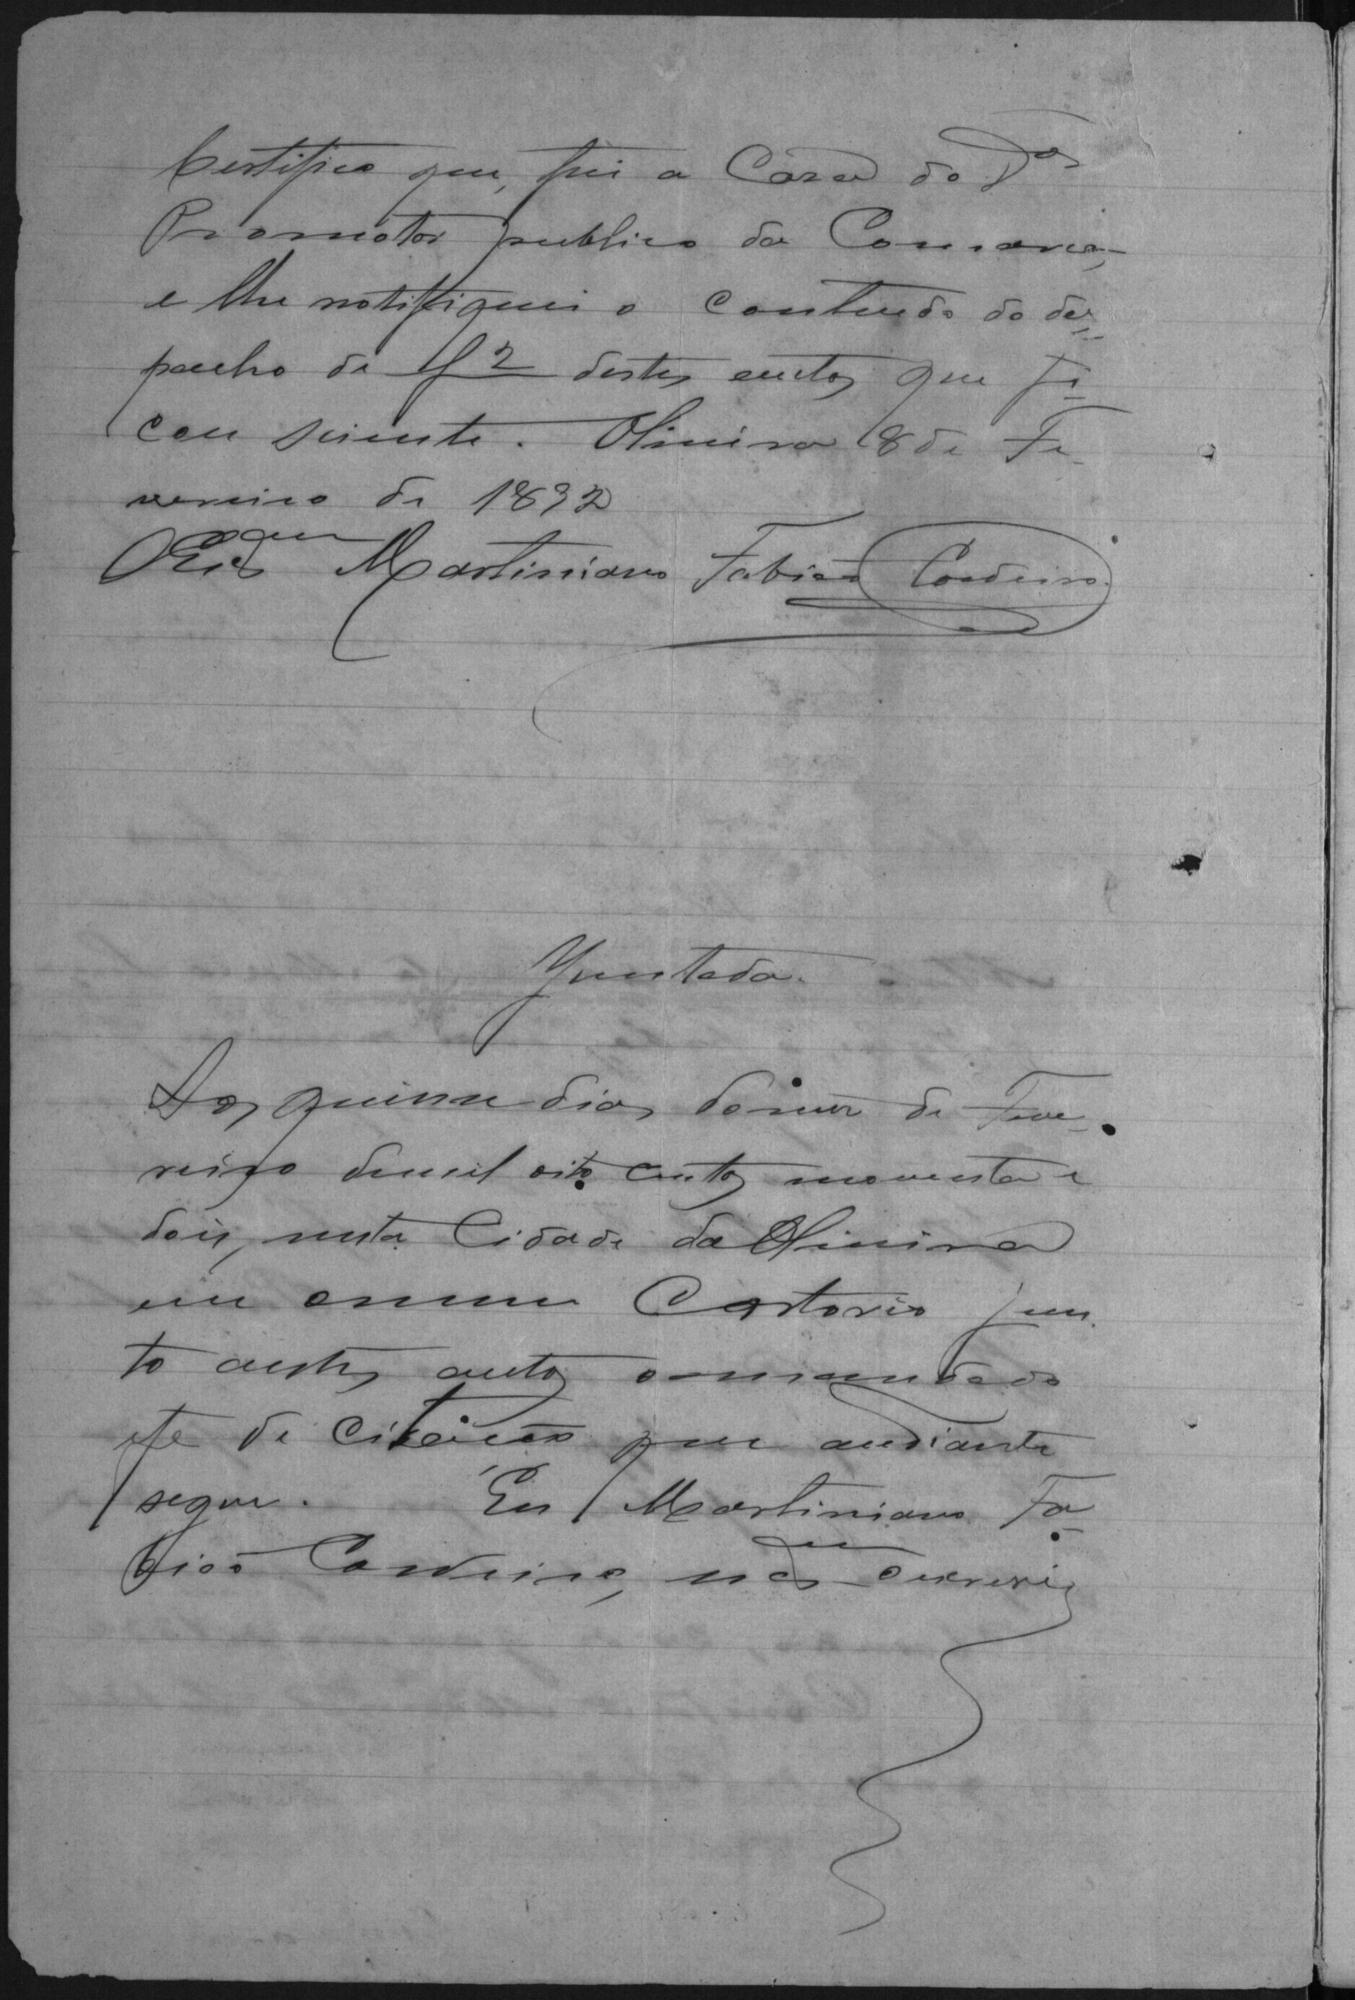 Certifico que, fui a Casa do Dor
Promotor publico da Comarca,
e lhe notifiquei o contheudo do des=
pacho de f 2 destes autos que fi=
cou sciente. Oliveira 8 de Fe-
vereiro de 1892
O Escram Martiniano Fabião Cordeiro.
Juntada.
Aos quinse dias do mez de Feve-
reiro de mil oito centos noventa e
dois, nesta Cidade da Oliveira
em o meu Cartorio jun-
to a estes autos o mandado
de citação que a diante
segue. Eu Martiniano Fa=
bião Cordeiro, escram o escrevi